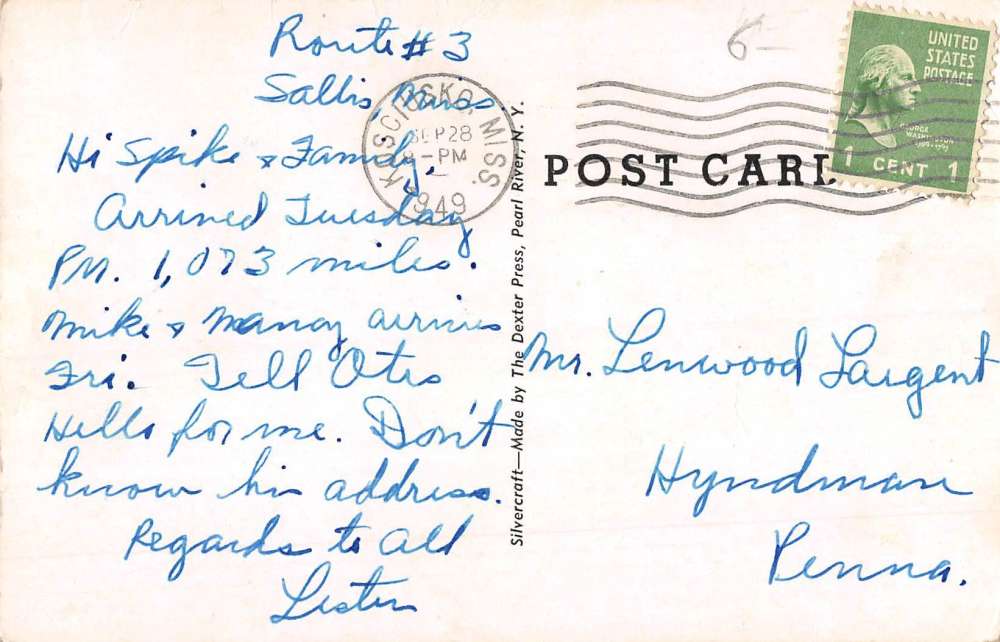 Route # 3
Sallis, Miss.
Hi Spike & Family,
Arrived Tuesday
PM. 1,073 miles.
Mike & Nancy arrives
Fri. Tell Otis
Hello for me. Don't
know his address.
Regards to all
Lester
KOSCIUSKO, MISS.
SEP 28
-PM
1949
Silvercraft—Made by The Dexter Press, Pearl River, N. Y.
6-
UNITED
STATES
POSTAGE
GEORGE
WASHINGTON
1 CENT 1
POST CARD
Mr. Lenwood Sargent
Hyndman
Penna.